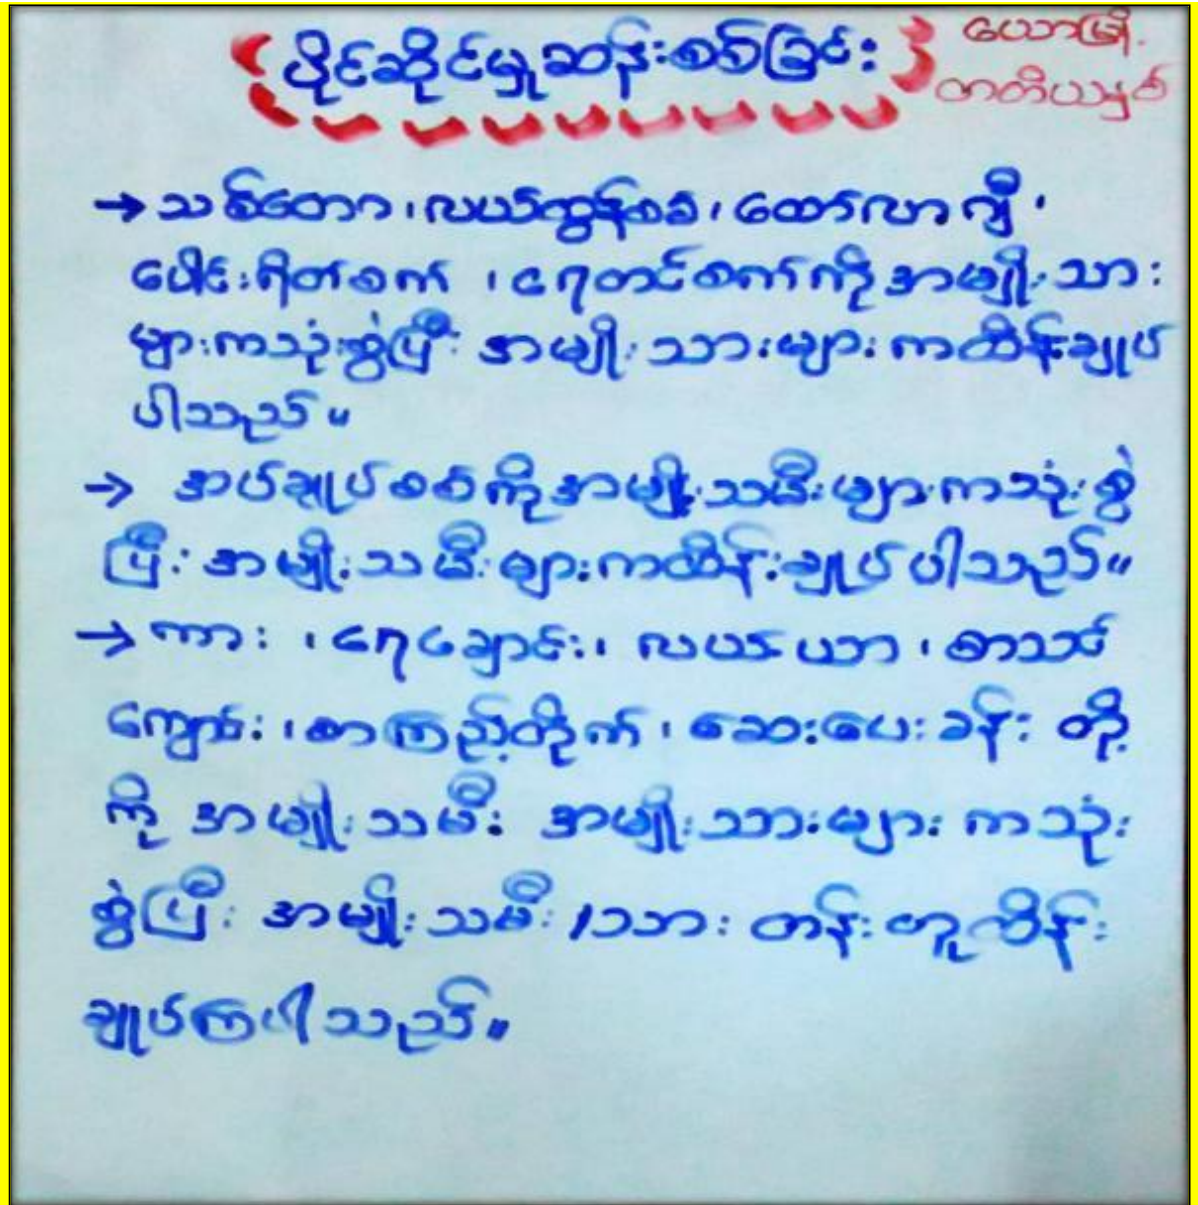 ပိုင်ဆိုင်မှုဆန်းစစ်ခြင်း
ယောမြို့
တတိယနှစ်
→ သစ်တော၊ လယ်ထွန်စစ်၊ ထော်လာဂျီ၊
ပေါင်းရိတ်စက်၊ ရေတင်စက်ကို အာမျိုးသား
များကသုံးစွဲပြီး အာမျိုးသားများကထိန်းချုပ်
ပါသည်။
→ အပ်ချုပ်စစ်ကို အာမျိုးသမီးများကသုံးစွဲ
ပြီး အာမျိုးသမီးများကထိန်းချုပ်ပါသည်။
→ ကား၊ ရေချောင်း၊ လယ်ယာ၊ စာသင်
ကျောင်း၊ စာကြည့်တိုက်၊ ဆေးပေးခန်း တို့
ကို အာမျိုးသမီး အာမျိုးသားများ ကသုံး
စွဲပြီး အာမျိုးသမီး/သား တန်းတူထိန်း
ချုပ်ကြပါသည်။